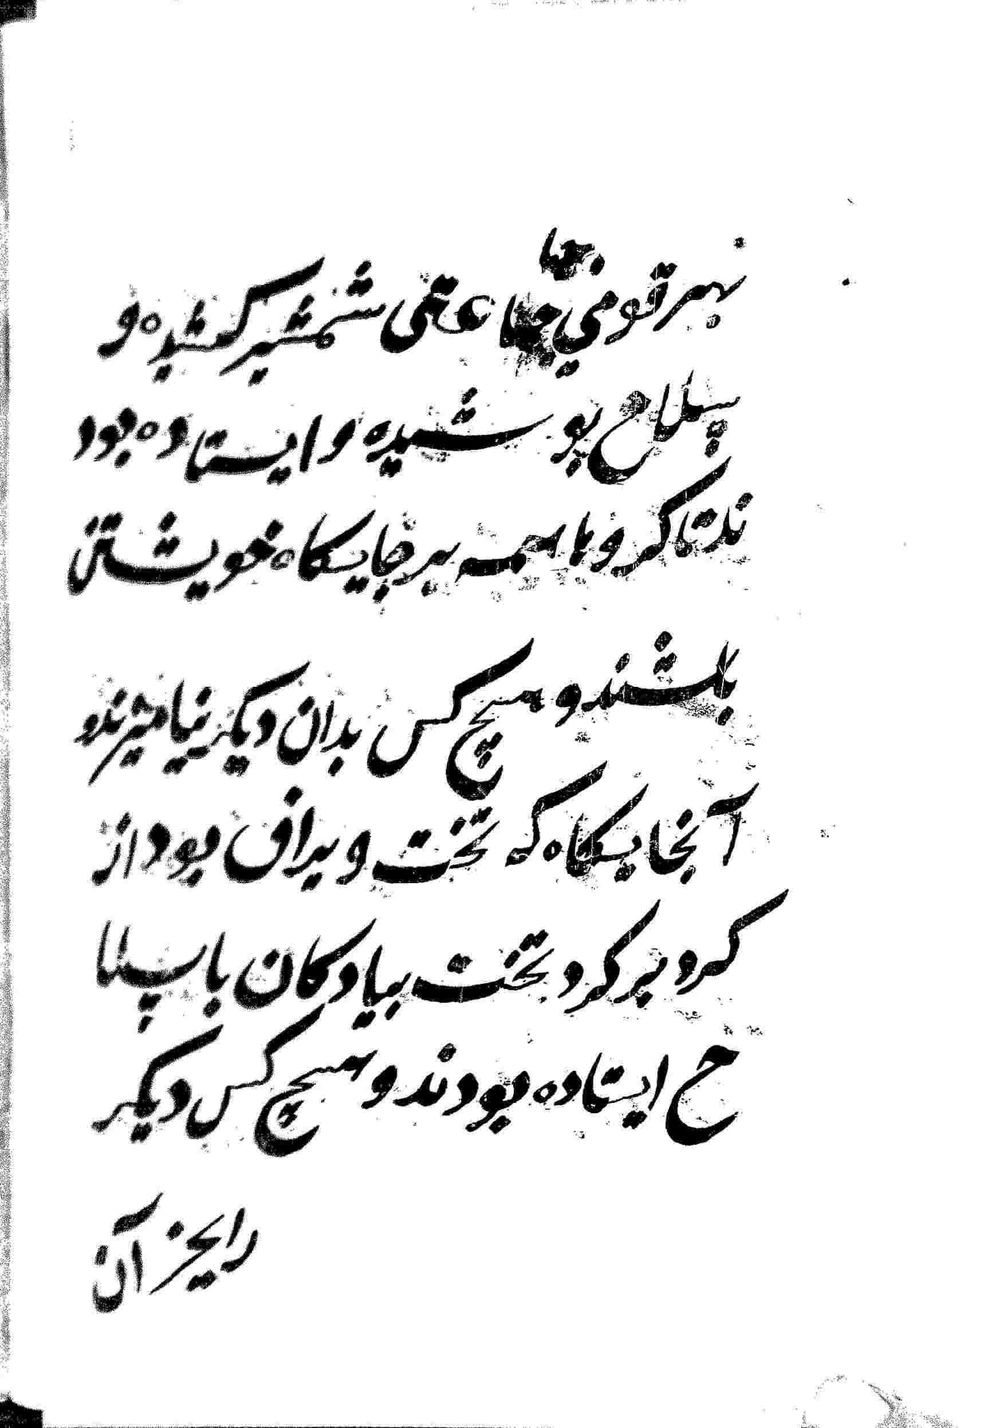 نهر قومی جماعتی شمشیر کشیده و
سلاح پوشیده و ایستاده بود
ند تا کروها همه بر جایکاه خویشتن
باشند و هیچ کس بدان دیکر نیامیزند و
آنجایکاه که تخت ویراف بود از
کرد بر کرد تخت پیادکان با سلا
ح ایستاده بودند و هیچ کس دیکر
را بجز آن